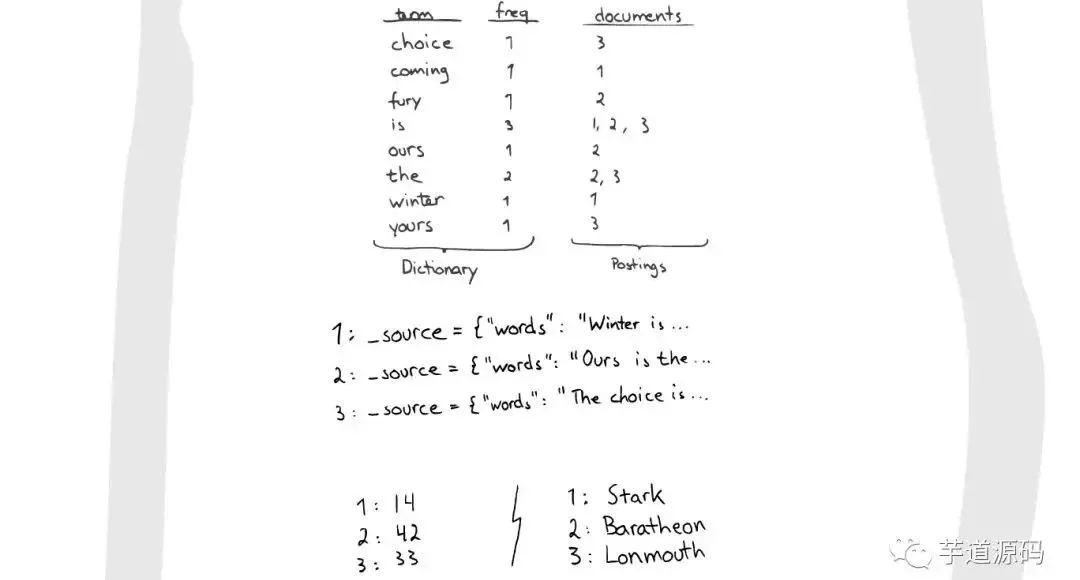 term freq documents
choice 1 3
coming 1 1
fury 1 2
is 3 1, 2, 3
ours 1 2
the 2 2, 3
winter 1 1
yours 1 3
Dictionary Postings
1: _source = {"words": "Winter is ...
2: _source = {"words": "Ours is the ...
3: _source = {"words": "The choice is ...
1: 14 1: Stark
2: 42 2: Baratheon
3: 33 3: Lonmouth
芋道源码